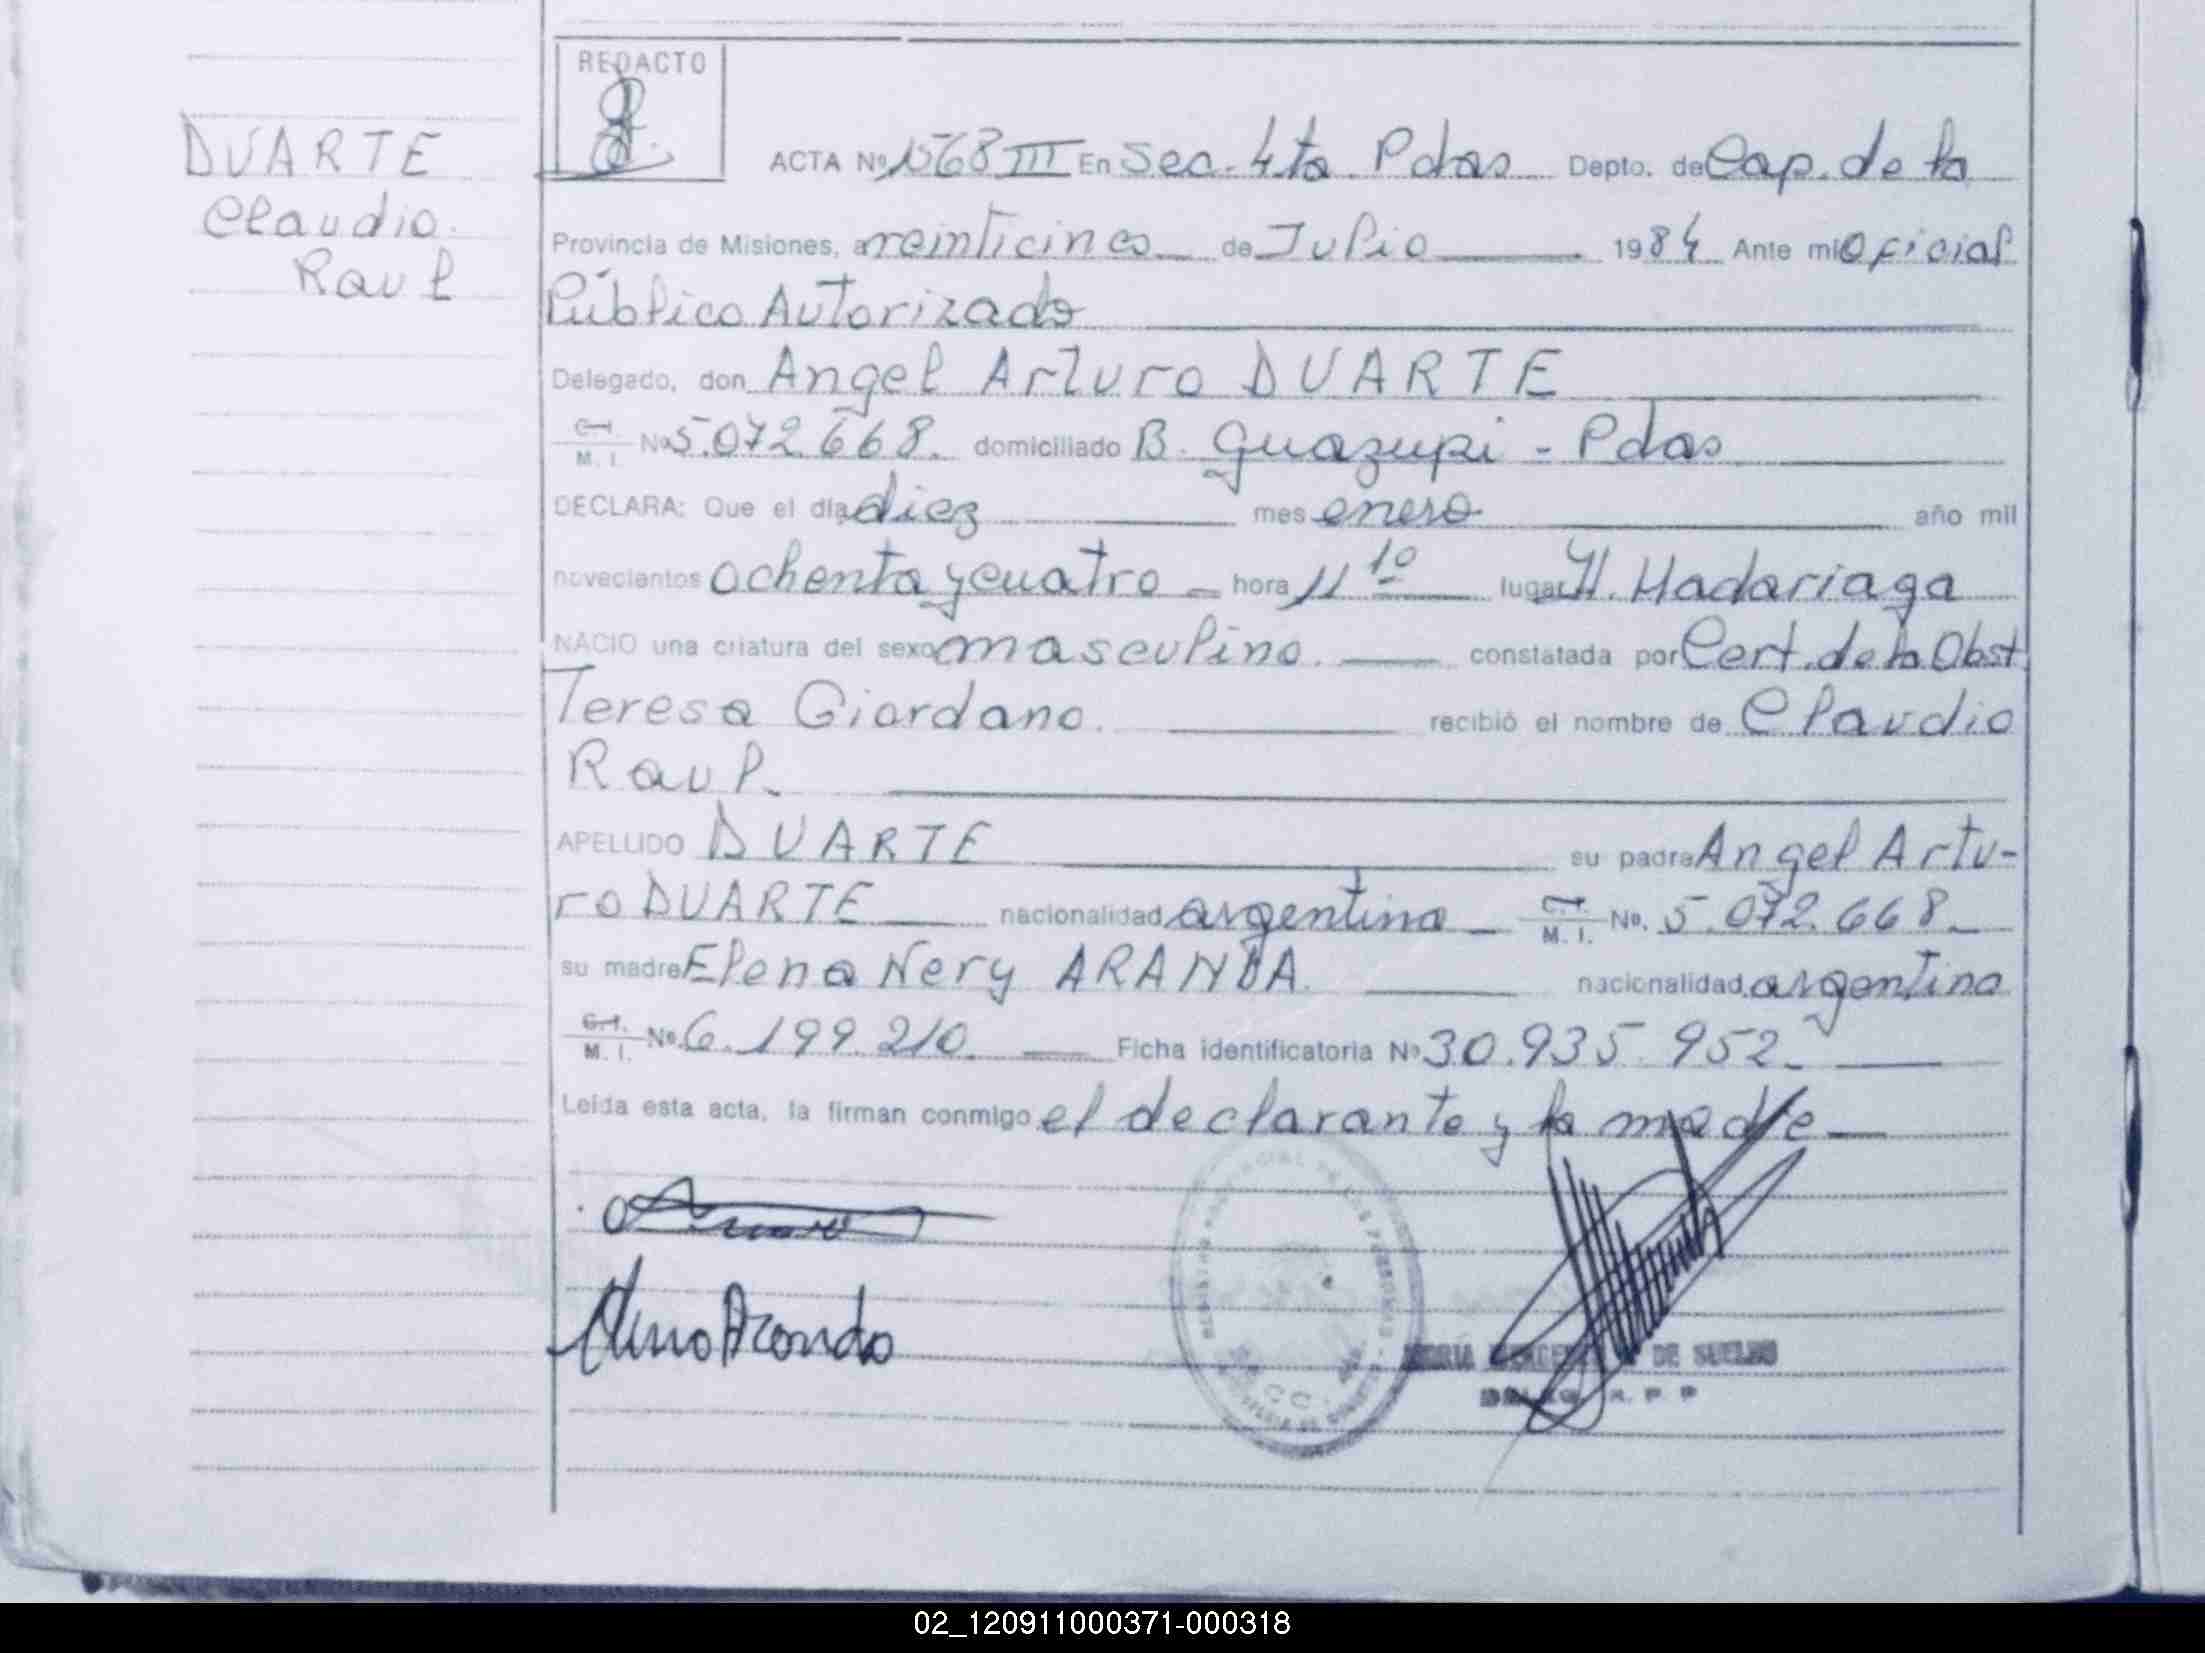 REDACTO
DUARTE
Claudio.
Raul
ACTA Nº 1568 III En Sec. 4ta Pdas Depto. de Cap. de la
Provincia de Misiones, a veinticinco de Julio 1984 Ante mi Oficial
Público Autorizado
Delegado, don Angel Arturo DUARTE
C.I. M. I. Nº 5.072.668. domiciliado B. Guazupi - Pdas
DECLARA: Que el día diez mes enero año mil
novecientos ochenta y cuatro hora 11 10 lugar H. Madariaga
NACIO una criatura del sexo masculino. constatada por Cert. de la Obst
Teresa Giordano. recibió el nombre de Claudio
Raul.
APELLIDO DUARTE su padre Angel Artu-
ro DUARTE nacionalidad argentina C.I. M. I. Nº. 5.072.668
su madre Elena Nery ARANDA. nacionalidad argentina
C.I. M. I. Nº. 6.199.210. Ficha identificatoria Nº 30.935.952
Leída esta acta, la firman conmigo el declarante y la madre
DE SUELDO
R. P. P
02_120911000371-000318